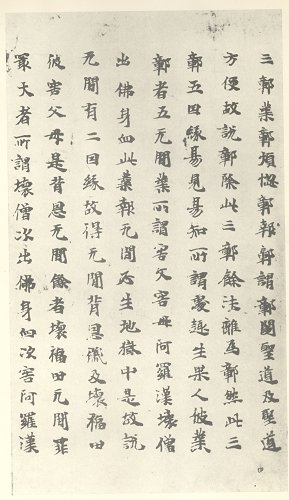 三鄣業鄣煩惱鄣報鄣謂鄣閡聖道及聖道
方便故說鄣除此三鄣餘法雖為鄣然此三
鄣五因緣易見易知所謂處趣生果人彼業
鄣者五无間業所謂害父害母阿羅漢壞僧
出佛身血此業報无間必生地獄中是故說
无間有二因緣故得无間背恩及壞福田
彼害父母是背恩无間餘者壞福田无間罪
最大者所謂壞僧次出佛身血次害阿羅漢